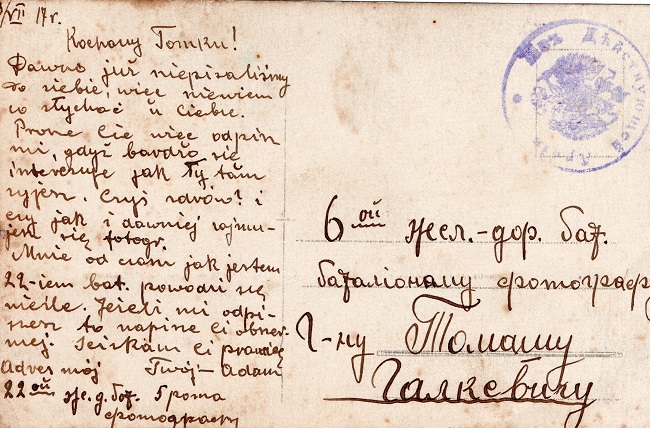 /VII 17 г.
Kochany Tomku!
Dawno już niepisaliśmy
do siebie, więc niewiem
co słychać u Ciebie.
Proszę Cię więc odpisz
mi, gdyż bardzo się
interesuję jak Ty tam
żyjesz. Czyś zdrów? i
czy jak i dawniej zajmu-
jesz się fotogr.
Mnie od czasu jak jestem
22-iem bat. powodzi się
nieźle. Jeżeli mi odpi-
szesz to napiszę Ci obszer-
niej. Ściskam Ci prawicę
Adres mój Twój Adam
22ой жел. д. бат. 5 рота
фотографу
Изъ Дѣйствующей Арміи
6ой жел.-дор. бат.
баталіонному фотографу
Г-ну Томашу
Галкевичу